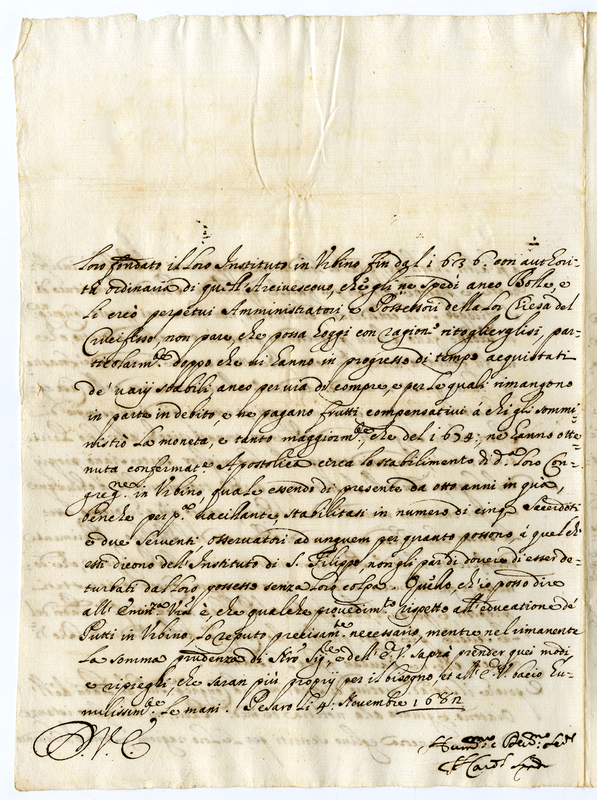 loro fondato il loro Instituto in Urbino fin dal 1636: con authori-
tà ordinaria di quell'Arcivescovo, che gli ne spedì anco Bolle, e
li creò perpetui Amministratori, e Possessori della lor Chiesa del
Crocifisso, non pare, che possa hoggi con ragion.e ritoglierglisi, par-
ticolarm.te doppo che vi hanno in progresso di tempo acquistati
de' varij stabili anco per via di compre, e per le quali rimangono
in parte in debito, e ne pagano frutti compensativi à chi gli sommi-
nistrò la moneta, e tanto maggiorm.te, che del 1674: ne hanno otte-
nuta confermat.e Apostolica circa lo stabilimento di d.a loro Con-
greg.ne in Urbino, quale essendo di presente da otto anni in quà,
benche per p.a vacillante, stabilitasi in numero di cinq. Sacerdoti
e due serventi osservatori ad unguem per quanto possono, à quel ch'
essi dicono dell'Instituto di S. Filippo, non gli par di dovere di esser de-
turbati dal loro possesso senza loro colpa. Quello, ch'io posso dire
all'Emin.za V.ra è, che qualche provedim.to rispetto all'educatione de'
Putti in Urbino, lo reputo precisam.te necessario, mentre nel rimanente
la somma prudenza di N.ro Sig.re, e dell'E.V. saprà prender quei modi,
e ripieghi, che saran più proprij per il bisogno, et all'E.V. bacio hu-
milissim.te le mani. Pesaro li 4: Novembre 1682
D. V. E.
Hum.mo e Dev.mo